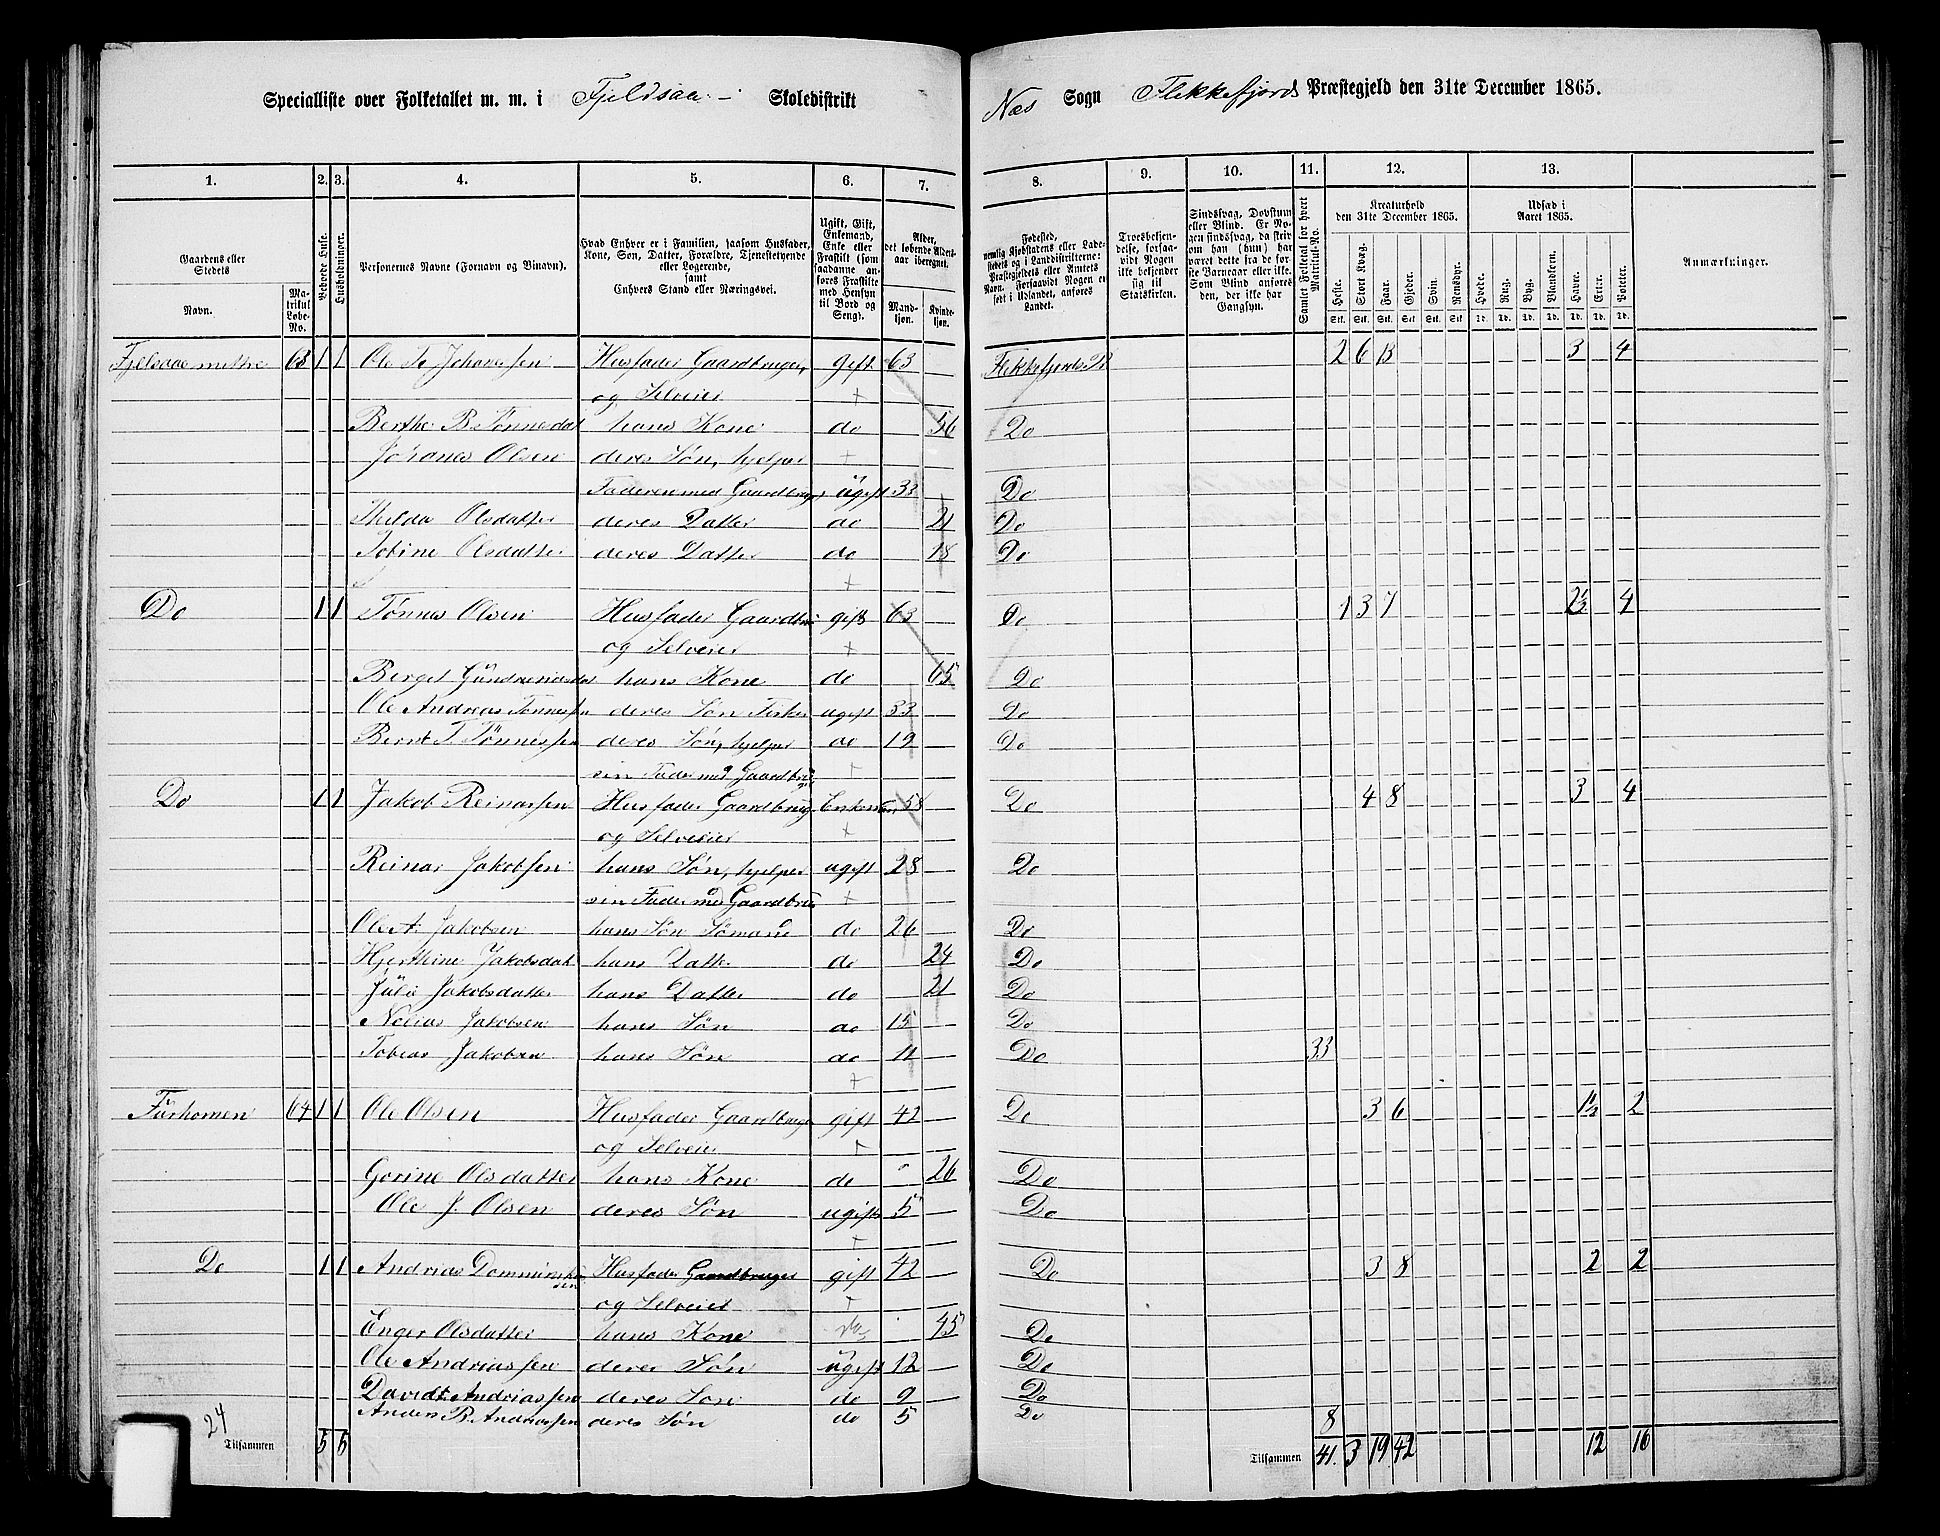 Specialliste over Folketallet m. m. i Fjeldsaa Skoledistrikt
Næs Sogn Flekkefjords Præstegjeld den 31te December 1865.
1. 2. 3. 4. 5. 6. 7. 8. 9. 10. 11. 12. 13.
Gaardens eller Stedets
Navn.
Matrikul Løbe-No.
Beboede Huse.
Husholdninger.
Personernes Navne (Fornavn og Tilnavn).
Hvad Enhver er i Familien, saasom Husfader, Kone, Søn, Datter, Forældre, Tjenestetyende eller Logerende, samt Enhvers Stand eller Næringsvei.
Ugift, Gift, Enkemand, Enke eller Fraskilt (som saadanne anføres Fraskilte med Hensyn til Bord og Seng).
Alder, det løbende Alders-aar iberegnet.
Mandkjøn. Kvindekjøn.
Fødested,
Anmærkninger.
Kreaturhold den 31te December 1865.
Udsæd i Aaret 1865.
Heste. Stort Kvæg. Faar. Gjeder. Svin. Rensdyr. Hvede. Rug. Byg. Blandkorn. Havre. Erter. Poteter.
63 1 1 Ole Johanessen Husfader Gaardbruger gift 63 Flekkefjords P. 2 6 13 3 4
og Selveier
Berthe B. Tønnesdat hans Kone do 56 Do
Johanes Olsen deres Søn, hjelper
Faderen med Gaardbruget ugift 33 Do
Thelda Olsdatter deres Datter do 21 Do
Tobine Olsdatter deres Datter do 18 Do
Do 1 1 Tønnes Olsen Husfader Gaardbru gift 63 Do 1 3 7 4
og Selveier
hans Kone do 65 Do
Ole Andreas Tønnessen deres Søn Fisker ugift 33 Do
Bernt T. Tønnessen deres Søn, hjelper do 19 Do
sin Fader med Gaardbrug
Do 1 1 Jakob Reinartsen Husfader Gaardbrug Enkemand 58 Do 4 8 3 4
og Selveier
Reinar Jakobsen hans Søn, hjelper ugift 28 Do
sin Fader med Gaardbrug
Ole A. Jakobsen hans Søn Sømand do 26 Do
Hjerthine Jakobsdat hans Datter do 24 Do
Julie Jakobsdatter hans Datter do 21 Do
Nelias Jakobsen hans Søn do 15 Do
Tobias Jakobsen hans Søn do 11 Do 33
Furhomen 64 1 1 Ole Olsen Husfader Gaardbruger gift 42 Do 3 6 1½ 2
og Selveier
Gorine Olsdatter hans Kone do 26 Do
Ole J. Olsen deres Søn ugift 5 Do
Do 1 1 Andrias Husfader Gaardbruger gift 42 Do 3 8 2 2
og Selveier
Enger Olsdatter hans Kone 45 Do
Ole Andriassen deres Søn ugift 12 Do
Davidt Andriassen deres Søn do 9 Do
Anders B. Andriassen deres Søn do 5 Do 8
24
Tilsammen 5 5 Tilsammen 41. 3 19 42 12 16